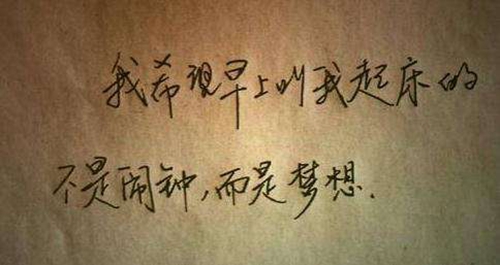 我希望早上叫我起床的
不是闹钟,而是梦想.